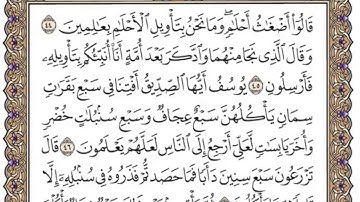 قَالُوٓا۟ أَضْغَٰثُ أَحْلَٰمٍۢ ۖ وَمَا نَحْنُ بِتَأْوِيلِ ٱلْأَحْلَٰمِ بِعَٰلِمِينَ ٤٤
وَقَالَ ٱلَّذِى نَجَا مِنْهُمَا وَٱدَّكَرَ بَعْدَ أُمَّةٍ أَنَا۠ أُنَبِّئُكُم بِتَأْوِيلِهِۦ
فَأَرْسِلُونِ ٤٥ يُوسُفُ أَيُّهَا ٱلصِّدِّيقُ أَفْتِنَا فِى سَبْعِ بَقَرَٰتٍۢ
سِمَانٍۢ يَأْكُلُهُنَّ سَبْعٌ عِجَافٌۭ وَسَبْعِ سُنۢبُلَٰتٍ خُضْرٍۢ
وَأُخَرَ يَابِسَٰتٍۢ لَّعَلِّىٓ أَرْجِعُ إِلَى ٱلنَّاسِ لَعَلَّهُمْ يَعْلَمُونَ ٤٦ قَالَ
تَزْرَعُونَ سَبْعَ سِنِينَ دَأَبًۭا فَمَا حَصَدتُّمْ فَذَرُوهُ فِى سُنۢبُلِهِۦٓ إِلَّا